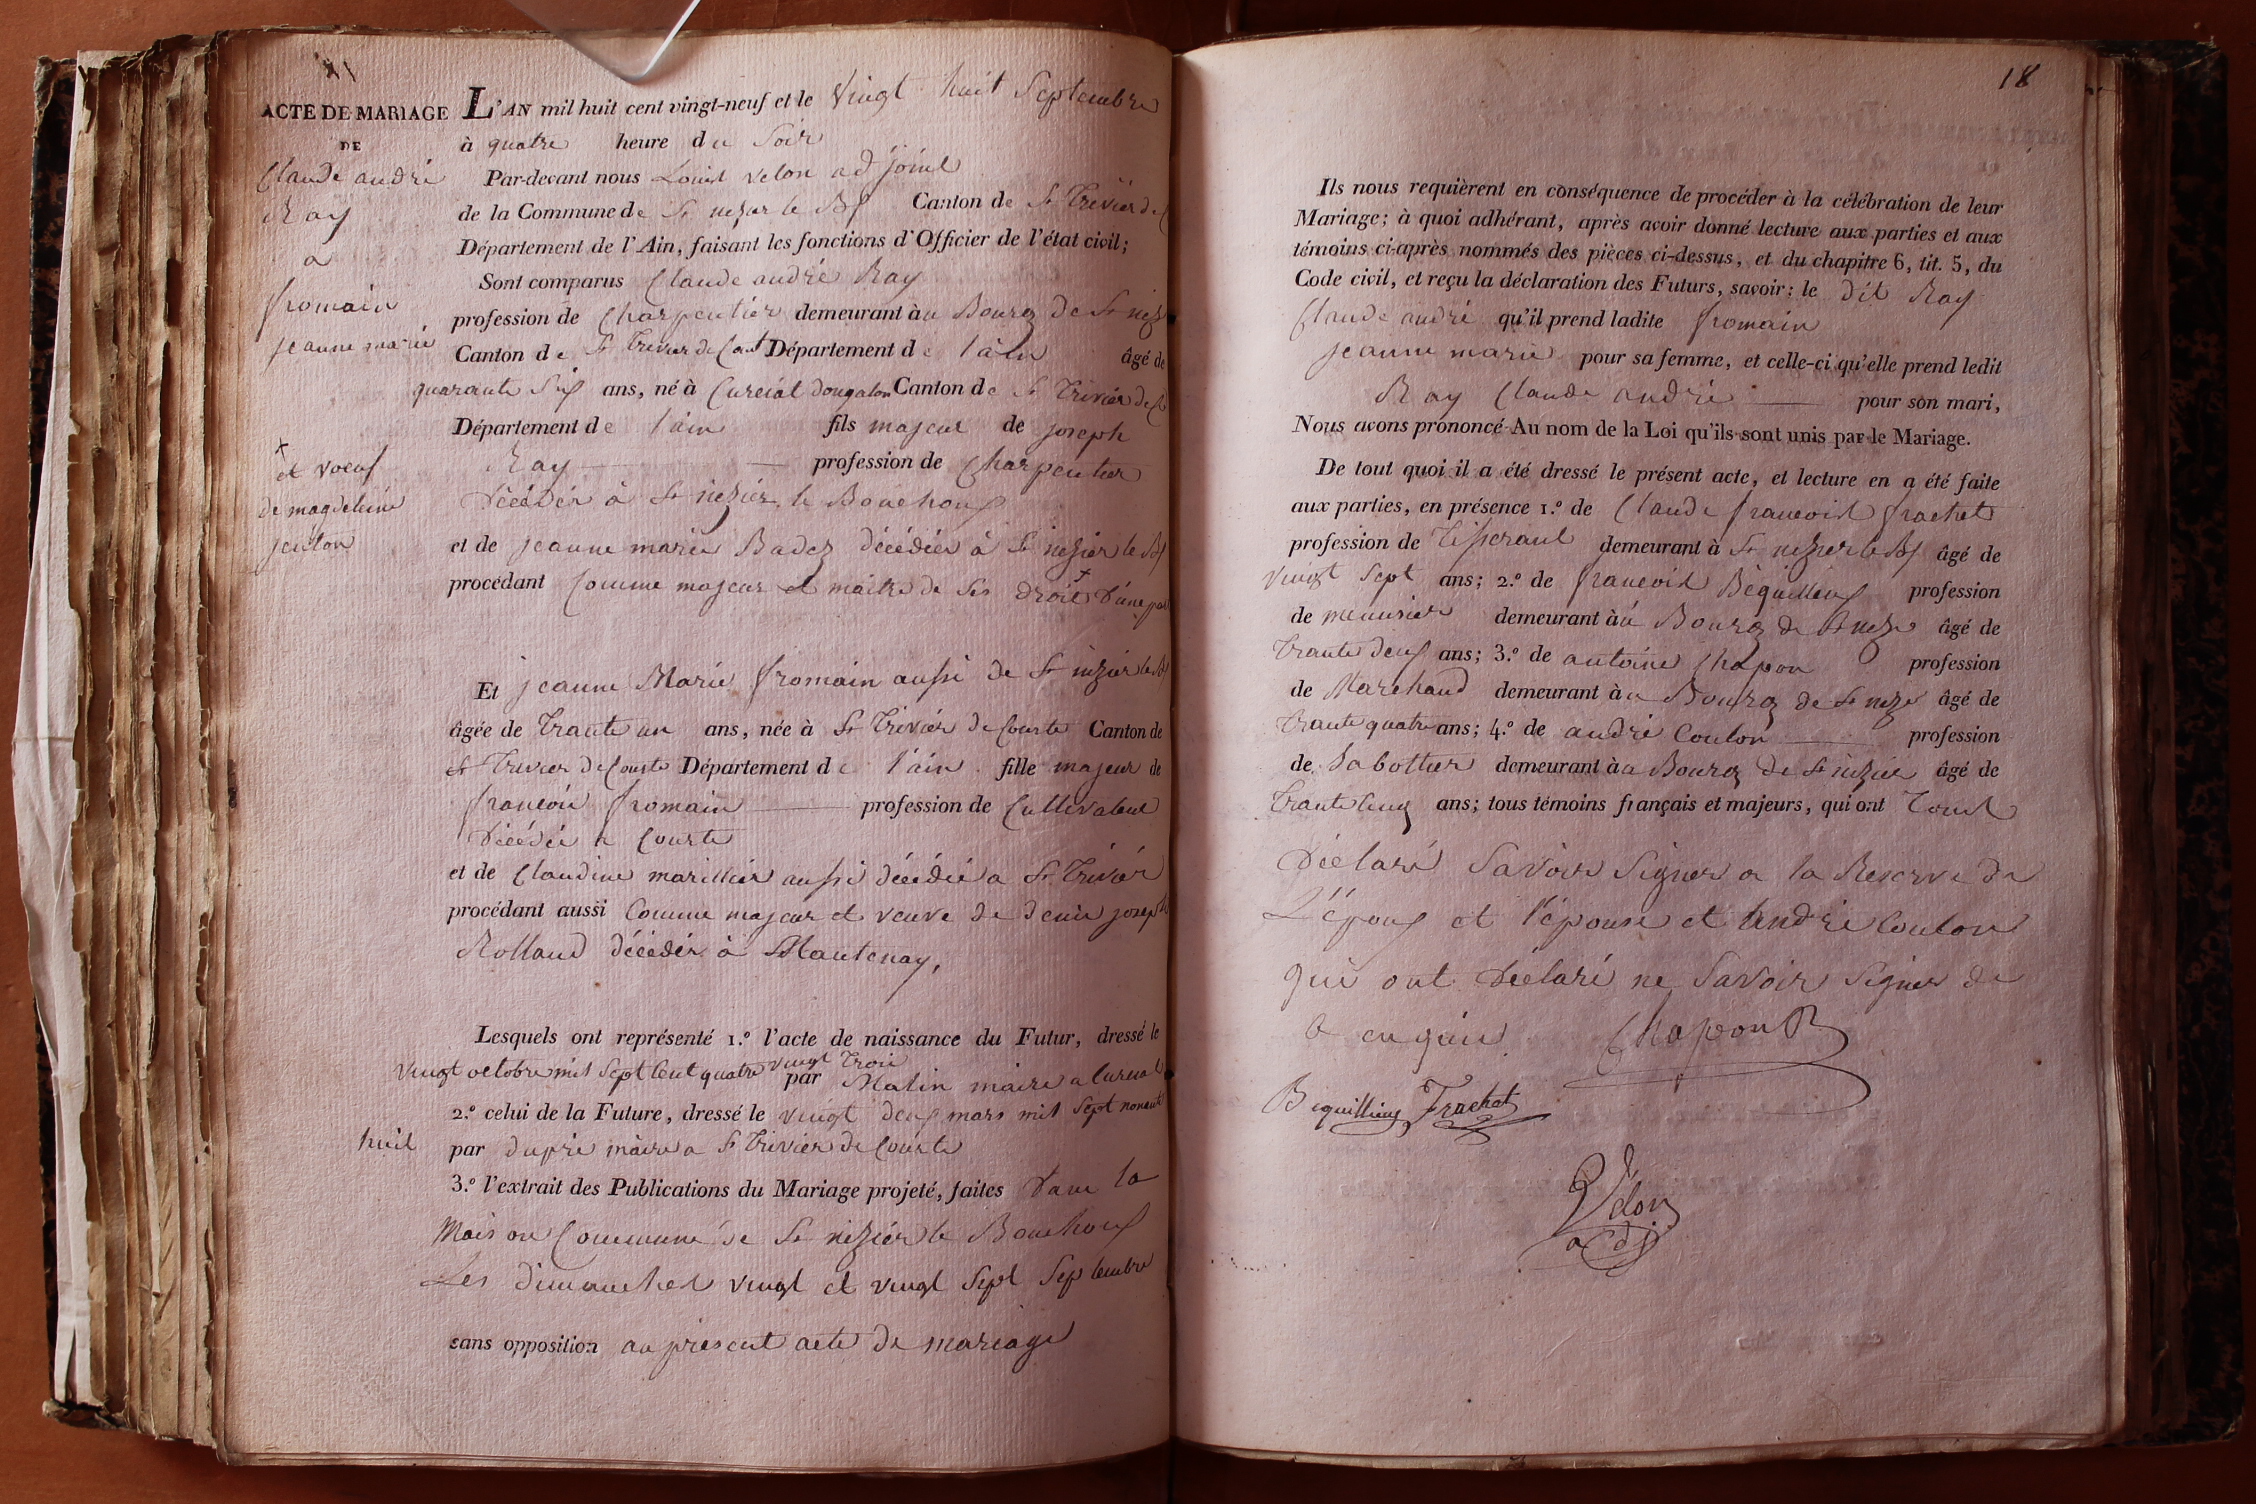 ACTE DE MARIAGE
DE
Claude andré
Ray
a
fromain
jeanne marie
L'AN mil huit cent vingt-neuf et le Vingt huit Septembre
à quatre heure du Soir
Par-devant nous Louis velon adjoint
de la Commune de St nizier le Bx Canton de St Trivier de C
Département de l'Ain, faisant les fonctions d'Officier de l'état civil;
Sont comparus Claude andré Ray
profession de Charpentier demeurant àu Bourg De St niz
Canton de St Trivier de Court Département de l'ain âgé de
quarante Six ans, né à Curciat dongalon Canton de St Trivier de C
Département de l'ain fils majeur de joseph
Ray profession de Charpentier
Décédér à St nizier le Bouchoux
et de jeanne marie Badez décédée à St nizier le Bx
procédant Comme majeur et maitre de ses droit + D'une part
+
et voeuf
de magdeleine
Et jeanne Marie fromain aussi de St nizier le B
âgée de Trante un ans, née à St Trivier de Courte Canton de
St Trivier de Courte Département de l'ain fille majeur de
francois fromain profession de Cultivateur
Décédée a Courte
et de Claudine marillier aussi décédée a St Trivier
procédant aussi Comme majeur et veuve de denie joseph
Rolland décédér à Mantenay,
Lesquels ont représenté 1.º l'acte de naissance du Futur, dressé le
vingt octobre mil Sept Cent quatre vingt Trois par Matin maire a Curciat
2.º celui de la Future, dressé le vingt deux mars mil Sept nonante
huit par dupré maire a St Trivier de Courte
3.º l'extrait des Publications du Mariage projeté, faites Dans la
Maison Commune de St nizier le Bouchoux
Les dimanches vingt et vingt Sept Septembre
sans opposition au présent acte de mariage
18
Ils nous requièrent en conséquence de procéder à la célébration de leur
Mariage; à quoi adhérant, après avoir donné lecture aux parties et aux
témoins ci-après nommés des pièces ci-dessus, et du chapitre 6, tit. 5, du
Code civil, et reçu la déclaration des Futurs, savoir: le dit Ray
Claude andré qu'il prend ladite fromain
jeanne marie pour sa femme, et celle-ci qu'elle prend ledit
Ray Claude andré pour son mari,
Nous avons prononcé Au nom de la Loi qu'ils sont unis par le Mariage.
De tout quoi il a été dressé le présent acte, et lecture en a été faite
aux parties, en présence 1.º de Claude francois frachet
profession de Tisserant demeurant à St nizier le Bx âgé de
vingt Sept ans; 2.º de francois Bèquilleux profession
de menuisier demeurant àu Bourg de St nizi âgé de
Trante deux ans; 3.º de antoine Chapon profession
de Marchand demeurant àu Bourg de St nizi âgé de
Trante quatre ans; 4.º de andré Coulon profession
de Sabottier demeurant àu Bourg de St nizier âgé de
Trante Cinq ans; tous témoins français et majeurs, qui ont Tous
Déclaré Savoir Signer a la Reserve de
L'époux et l'épouse et André Coulon
qui ont Déclaré ne Savoir Signer de
Chapon
Bequilleux Frachet
Vélon
adj